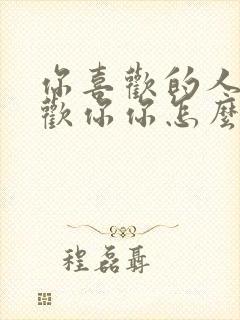 你喜歡的人
歡你你怎麼
程磊聶